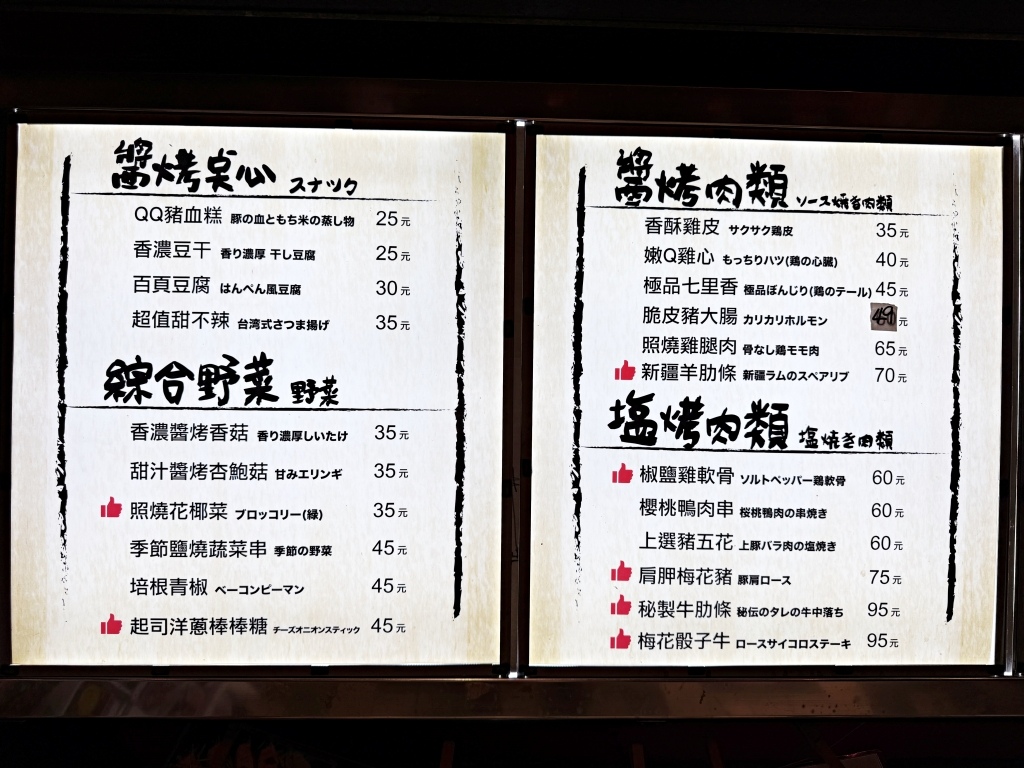 醬烤點心 スナック
QQ豬血糕 豚の血ともち米の蒸し物 25元
香濃豆干 香り濃厚 干し豆腐 25元
百頁豆腐 はんぺん風豆腐 30元
超值甜不辣 台湾式さつま揚げ 35元
綜合野菜 野菜
香濃醬烤香菇 香り濃厚しいたけ 35元
甜汁醬烤杏鮑菇 甘みエリンギ 35元
照燒花椰菜 ブロッコリー(緑) 35元
季節鹽燒蔬菜串 季節の野菜 45元
培根青椒 ベーコンピーマン 45元
起司洋蔥棒棒糖 チーズオニオンスティック 45元
醬烤肉類 ソース焼き肉類
香酥雞皮 サクサク鶏皮 35元
嫩Q雞心 もっちりハツ(鶏の心臓) 40元
極品七里香 極品ぼんじり(鶏のテール) 45元
脆皮豬大腸 カリカリホルモン 元
照燒雞腿肉 骨なし鶏モモ肉 65元
新疆羊肋條 新疆ラムのスペアリブ 70元
塩烤肉類 塩焼き肉類
椒鹽雞軟骨 ソルトペッパー鶏軟骨 60元
櫻桃鴨肉串 桜桃鴨肉の串焼き 60元
上選豬五花 上豚バラ肉の塩焼き 60元
肩胛梅花豬 豚肩ロース 75元
秘製牛肋條 秘伝のタレの牛中落ち 95元
梅花骰子牛 ロースサイコロステーキ 95元